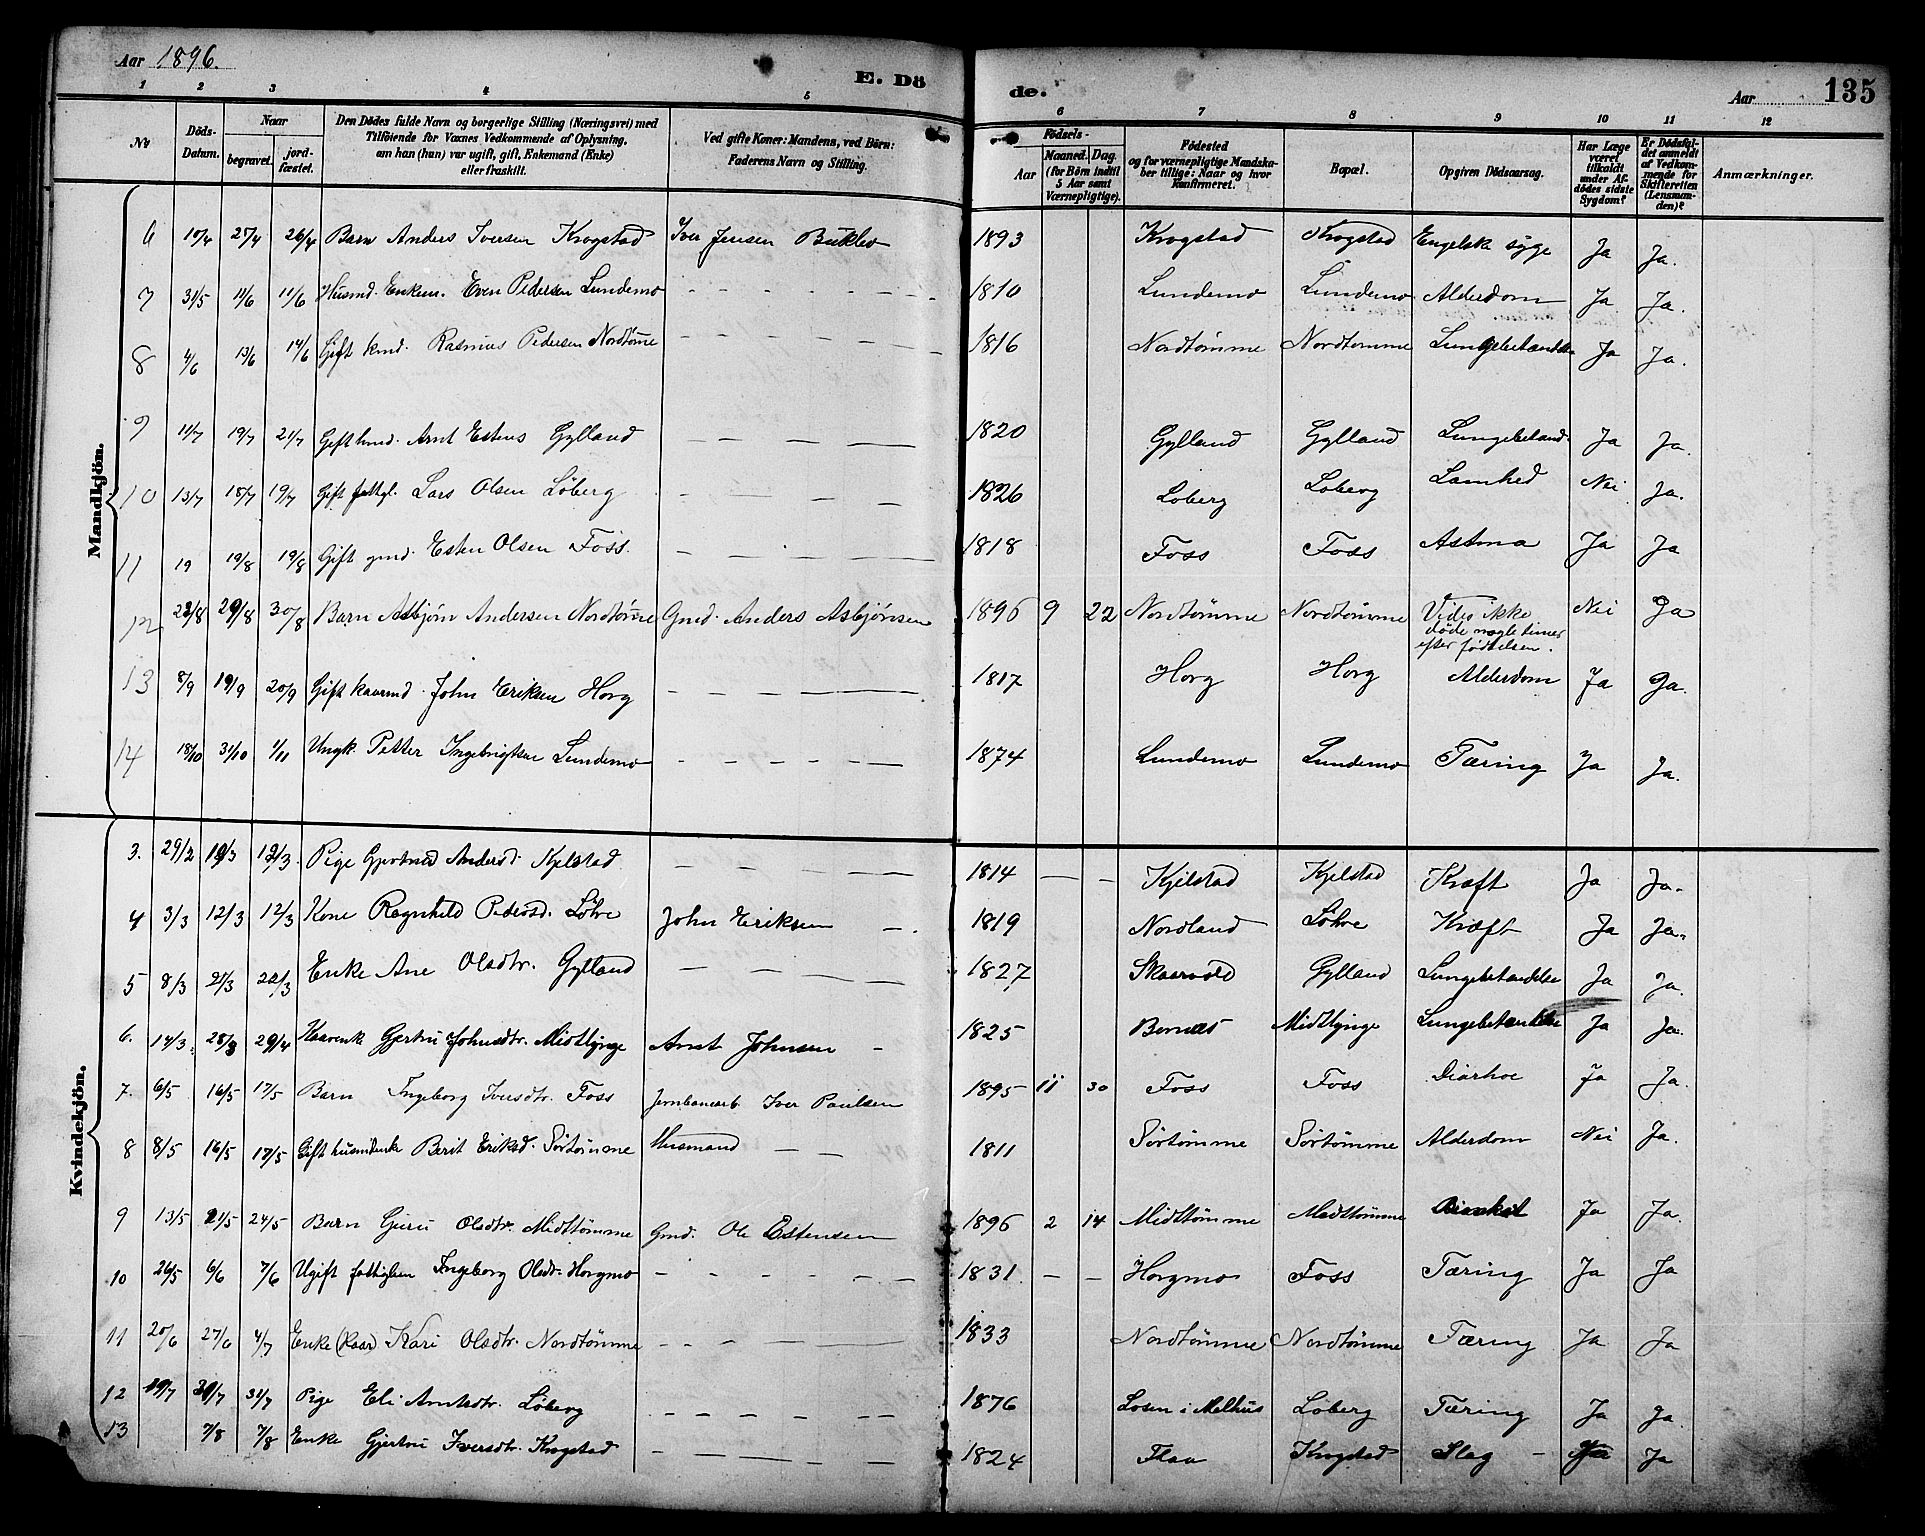 Aar 1896.
E. Dö
de.
Aar
135
1 2 3 4 5 6 7 8 9 10 11 12
No
Döds-Datum.
Naar
begravet.
jord-fæstet.
Den Dödes fulde Navn og borgerlige Stilling (Næringsvei) med
Tilföiende for Voxnes Vedkommende af Oplysning,
om han (hun) var ugift, gift, Enkemand (Enke)
eller fraskilt.
Ved gifte Koner: Mandens, ved Börn:
Faderens Navn og Stilling.
Födsels-
Aar
Maaned. Dag.
(for Börn indtil
5 Aar samt
Værnepligtige).
Födested
og for værnepligtige Mandska-
ber tillige: Naar og hvor
Konfirmeret.
Bopæl.
Opgiven Dödsaarsag.
Har Læge
været
tilkaldt
under Af-
dödes sidste
Sygdom?
Er Dödsfal-
det anmeldt
af Vedkom-
mende for
Skifteretten
(Lensman-
den)?
Anmærkninger.
Mandkjön.
6 10/4 27/4 26/4 Barn Anders Iversen Krogstad Iver Jensen 1893 Krogstad Krogstad Engelsk syge Ja Ja.
7 31/5 11/6 11/6 Husmd. Enkem. Even Pedersen Lundemo 1810 Lundemo Lundemo Alderdom Ja Ja.
8 4/6 13/6 14/6 Gift kmd. Rasmus Pedersen Nordtömme 1816 Nordtömme Nordtömme Lungebetændelse Ja Ja.
9 11/7 19/7 21/7 Gift Arnt Estens Gylland 1820 Gylland Gylland Lungebetænd. Ja Ja.
10 13/7 18/7 19/7 Gift fattgl. Lars Olsen Löberg 1826 Loberg Loberg Lamhed Nei Ja.
11 19 19/8 19/8 Gift gmd. Esten Olsen Foss. 1818 Foss Foss Astma Ja Ja
12 22/8 29/8 30/8 Barn Asbjörn Andersen Nordtömme Gmd. Anders Asbjörnsen 1896 9 22 Nordtömme Nordtömme Vides ikke Nei Ja
døde nogle timer
efter födselsen.
13 8/9 19/9 20/9 Gift kaarmd. John Eriksen Horg 1817 Horg Horg Alderdom Ja Ja.
14 18/10 31/10 1/11 Ungk. Petter Ingebrigtsen Lundemo 1874 Lundemo Lundemo Tæring Ja Ja.
Kvindekjön.
3. 29/2 Pige Gjertrud Andersd. Kjelstad 1814 Kjelstad Kjelstad Kræft Ja Ja.
4 3/3 12/3 12/3 Kone Ragnhild Pedersd. Löhre John Eriksen 1819 Nordland Löhre Kræft Ja Ja.
5 8/3 21/3 22/3 Enke Ane Olsdtr. Gylland 1827 Skaarvold Gylland Lungebetændelse Ja Ja.
6. 14/3 28/3 29/4 Kaarenk Gjertru Johnsdtr. Midtlynge Arnt Johnsen 1825 Midtlynge Lungebetændelse Ja Ja.
7. 6/5 16/5 17/5 Barn Ingeborg Iversdtr. Foss Jernbanearb. Iver Paulsen 1895 11 30 Foss Foss Diarhoe Ja Ja.
8 8/5 16/5 17/5 Gift husmdenke Berit Eriksd. Sörtömme Husmand 1811 Sörtömme Sörtömme Alderdom Nei Ja.
9 13/5 21/5 24/5 Barn Guru Olsdtr. Midttömme Gmd. Ole Estensen 1896 2 14 Midttömme Midttömme Ja Ja.
10 26/5 6/6 7/6 Ugift fattiglem Ingeborg Olsdtr. Horgmo 1831 Horgmo Foss Tæring Ja Ja
11 20/6 27/6 4/7 Enke (Kaar) Kari Olsdtr. Nordtömme 1833 Nordtömme Nordtömme Tæring Ja Ja
12 19/7 30/7 31/7 Pige Eli Arntsdtr. Löberg 1876 Losen i Melhus Loberg Tæring Ja Ja.
13 7/8 7/8 Enke Gjertru Iversdtr. Krogstad 1824 Flaa Krogstad Slag Ja Ja